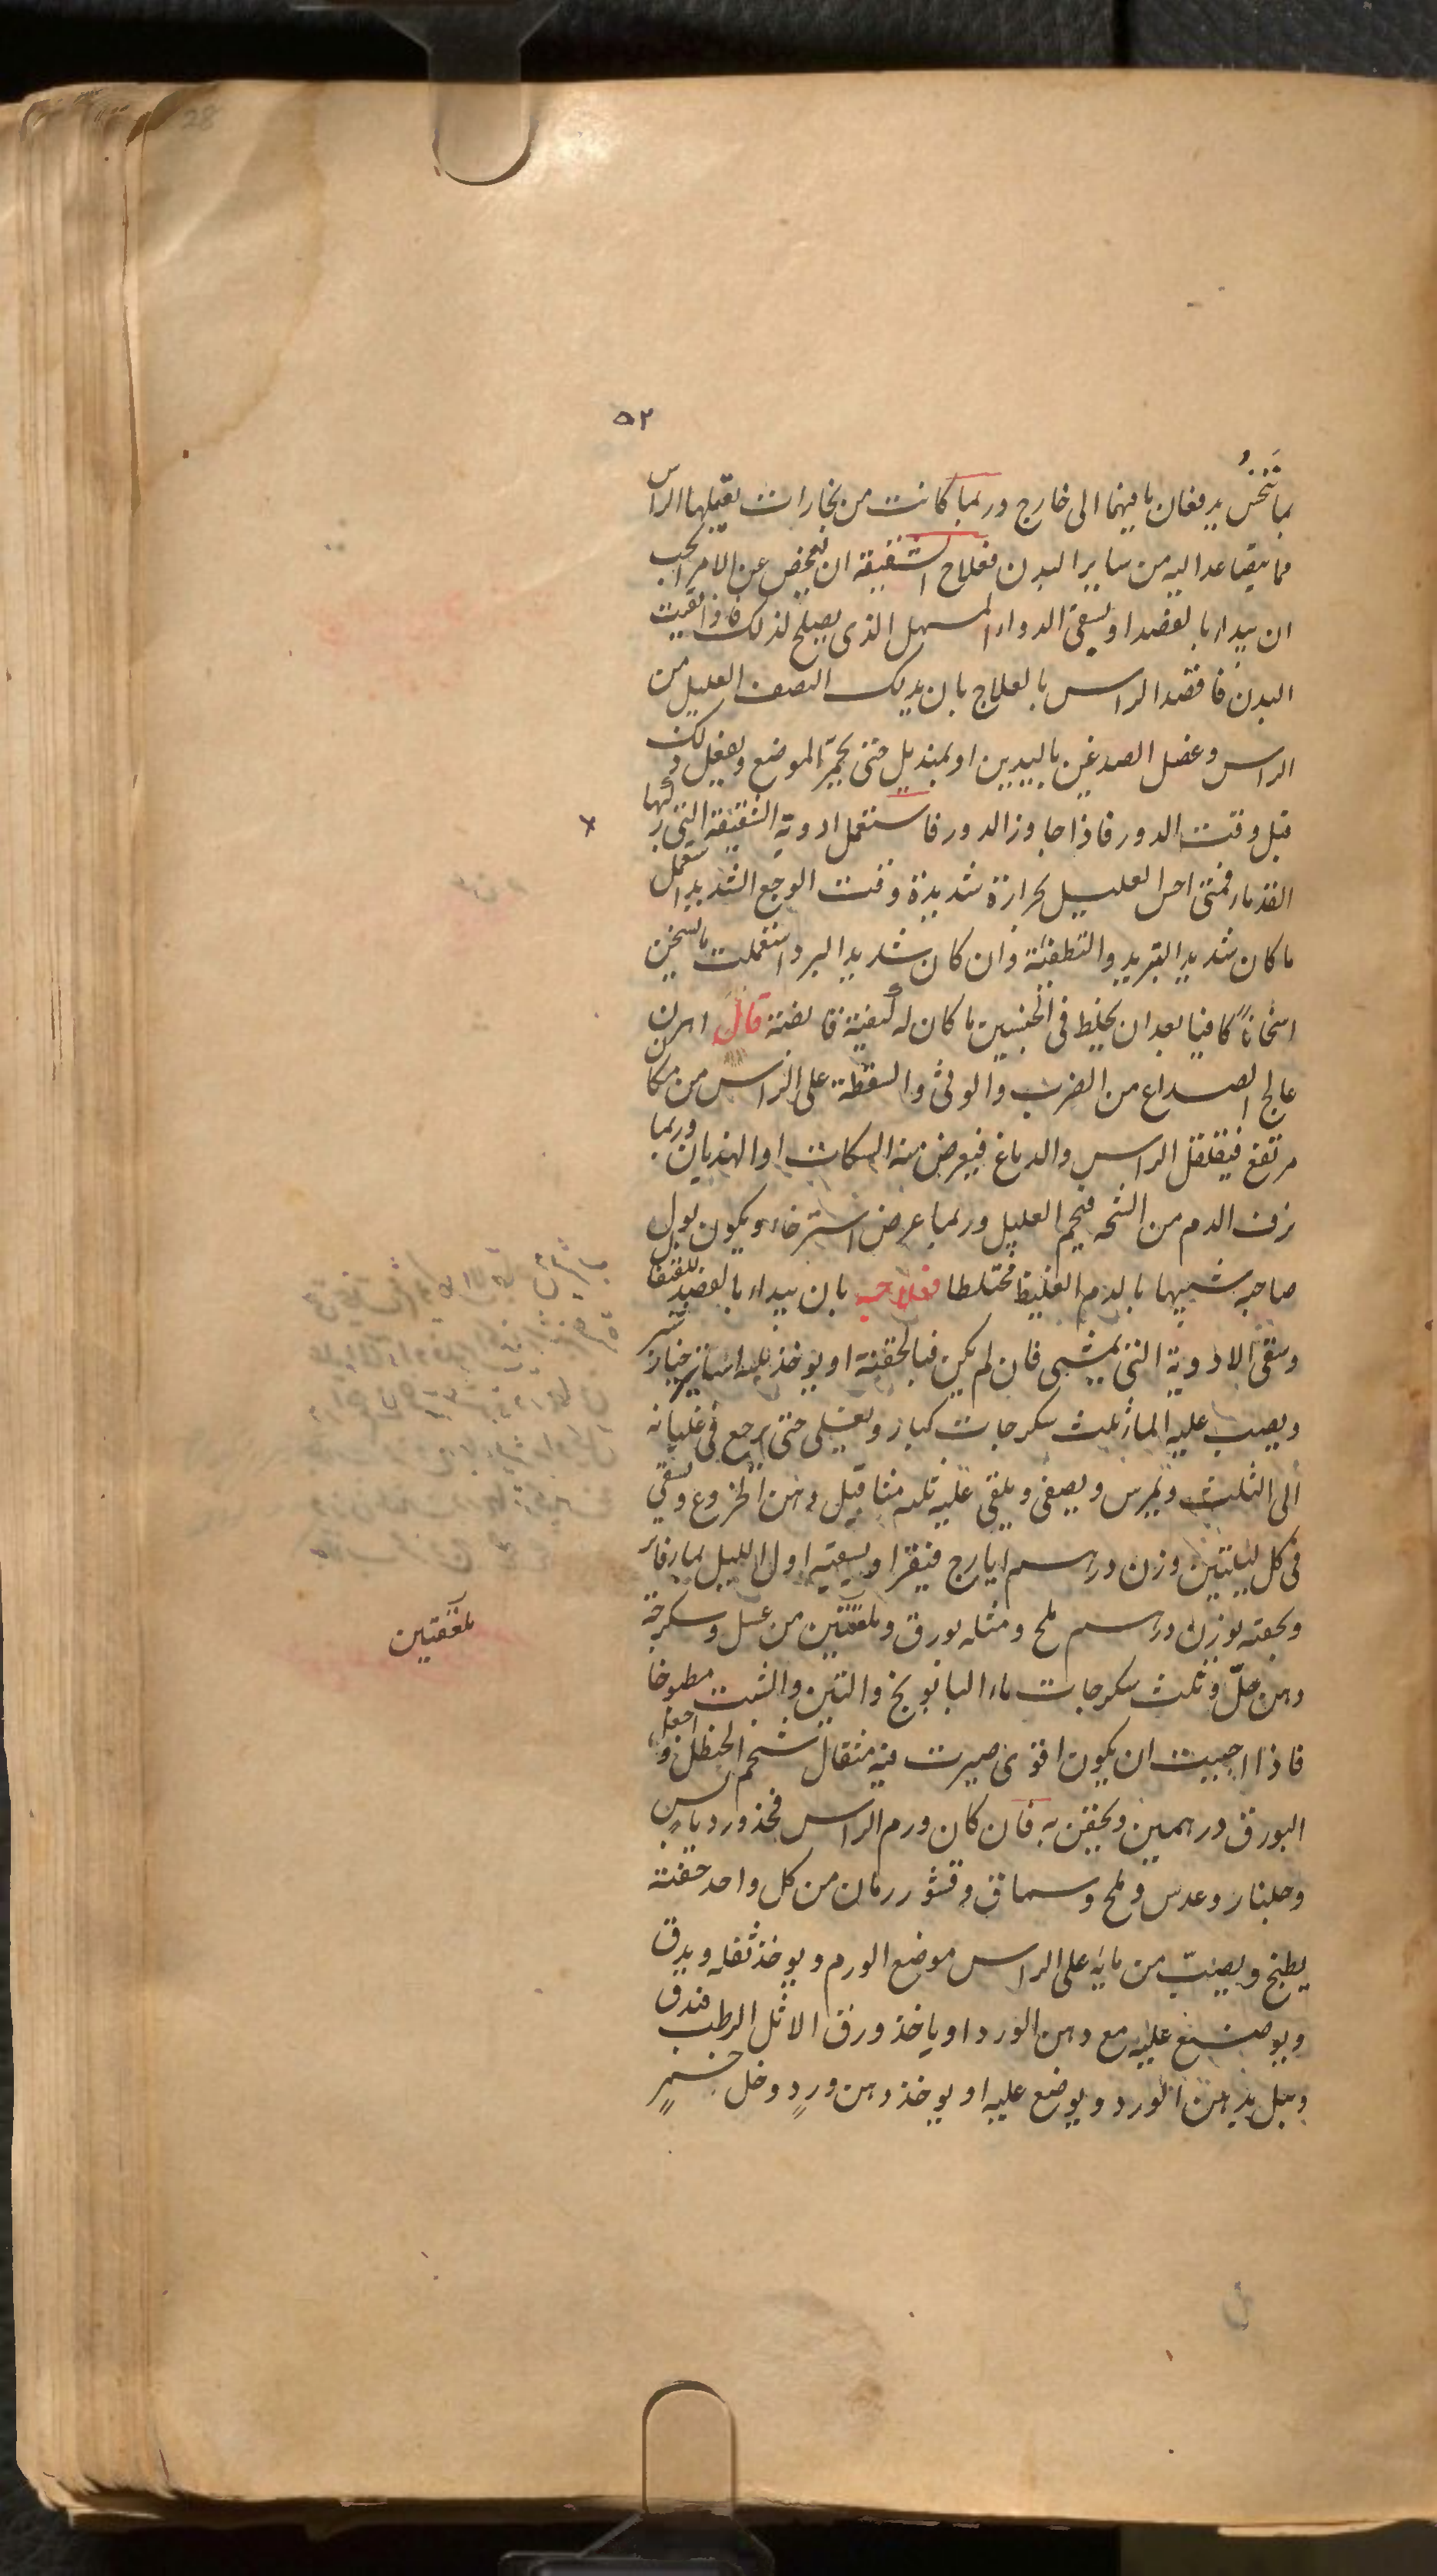 ٥٢
بالنخس يدفعان ما فيهما الى خارج وربما كانت من بخارات يقبلها الراس
مما يتصاعد اليه من ساير البدن فعلاج الشقيقة ان تفحص عن الامر الجب
ان يبداء بالفصد او يسقى الدواء المسهل الذى يصلح لذلك فاذا نقيت
البدن فاقصد الراس بالعلاج بان يدلك النصف العليل من
الراس وعضل الصدغين باليدين او بمنديل حتى يحمر الموضع ويفعل ذلك
قبل وقت الدور فاذا جاوز الدور فاستعمل ادوية الشقيقة التى ركبها
القدماء فمتى احس العليل بحرارة شديدة وقت الوجع الشديد استعمل
ما كان شديد التبريد والتطفئة وان كان شديد البرد استعملت ما يسخن
اسخانا كافيا بعد ان يخلط فى الجنسين ما كان له كيفية قابضة قال اهرن
عالج الصداع من الضرب والوثى والسقطة على الراس من مكان
مرتفع فيقلقل الراس والدماغ فيعرض منه السكات او الهذيان وربما
نزف الدم من الشجه فيحم العليل وربما عرض استرخاء ويكون بول
صاحبه شبيها بالدم الغليظ مختلطا فعلاجه بان يبداء بالفصد للقيفال
وسقى الادوية التى يمشى فان لم يكن فبالحقنة او يوخذ ثلثه اساتير خيار شنبر
ويصب عليه الماء ثلث سكرجات كبار ويغلى حتى يرجع فى غليانه
الى الثلث ويمرس ويصفى ويلقى عليه ثلثه مثاقيل دهن الخروع ويسقى
فى كل ليلتين وزن درهم ايارج فيقرا ويسقيه اول الليل بماء فاتر
ويحقنه بوزن درهم ملح ومثله بورق وملعقتين من عسل وسكرجة
دهن حلّ وثلث سكرجات ماء البابونج والتين والشبت مطبوخا
فاذا احببت ان يكون اقوى صيرت فيه مثقال شحم الحنظل واجعل
البورق درهمين ويحقن به فان كان ورم الراس فخذ ورد يابس
وجلنار وعدس وملح وسماق وقشور رمان من كل واحد حفنة
يطبخ ويصبّ من مايه على الراس موضع الورم ويوخذ ثفله ويدق
ويوضع عليه مع دهن الورد او ياخذ ورق الاثل الرطب فتدق
وتبل بدهن الورد ويوضع عليه او يوخذ دهن وردٍ وخل خمرٍ
ملعقتين